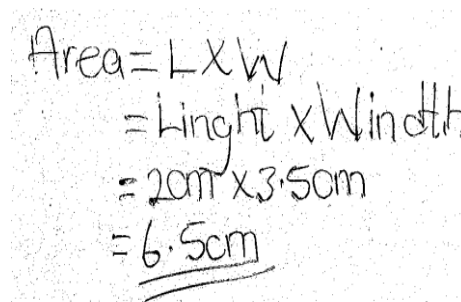 Area = L X W
= Linght x Windth
= 2cm x 3.5cm
= 6.5cm